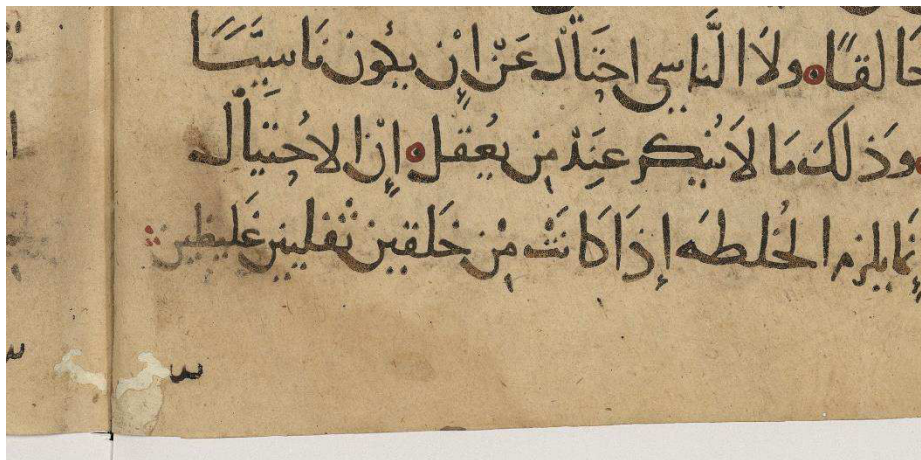 خالقًا ولا الناسي احتال عن ان يكون ناسيًا
وذلك ما لا ينكر عند من يعقل إن الاحتيال
إنما يلزم الخلطه إذا كانت من خلقين ثقليين غليظين